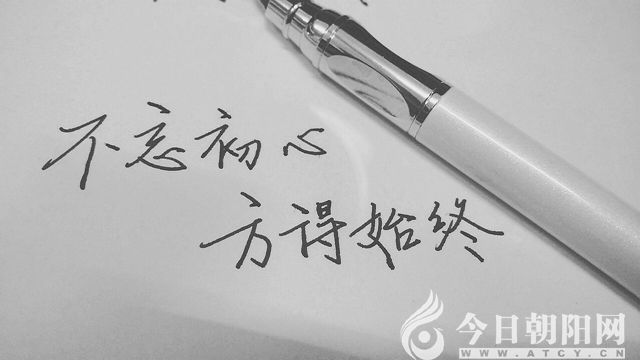 不忘初心
方得始终
今日朝阳网
WWW.ATCY.CN